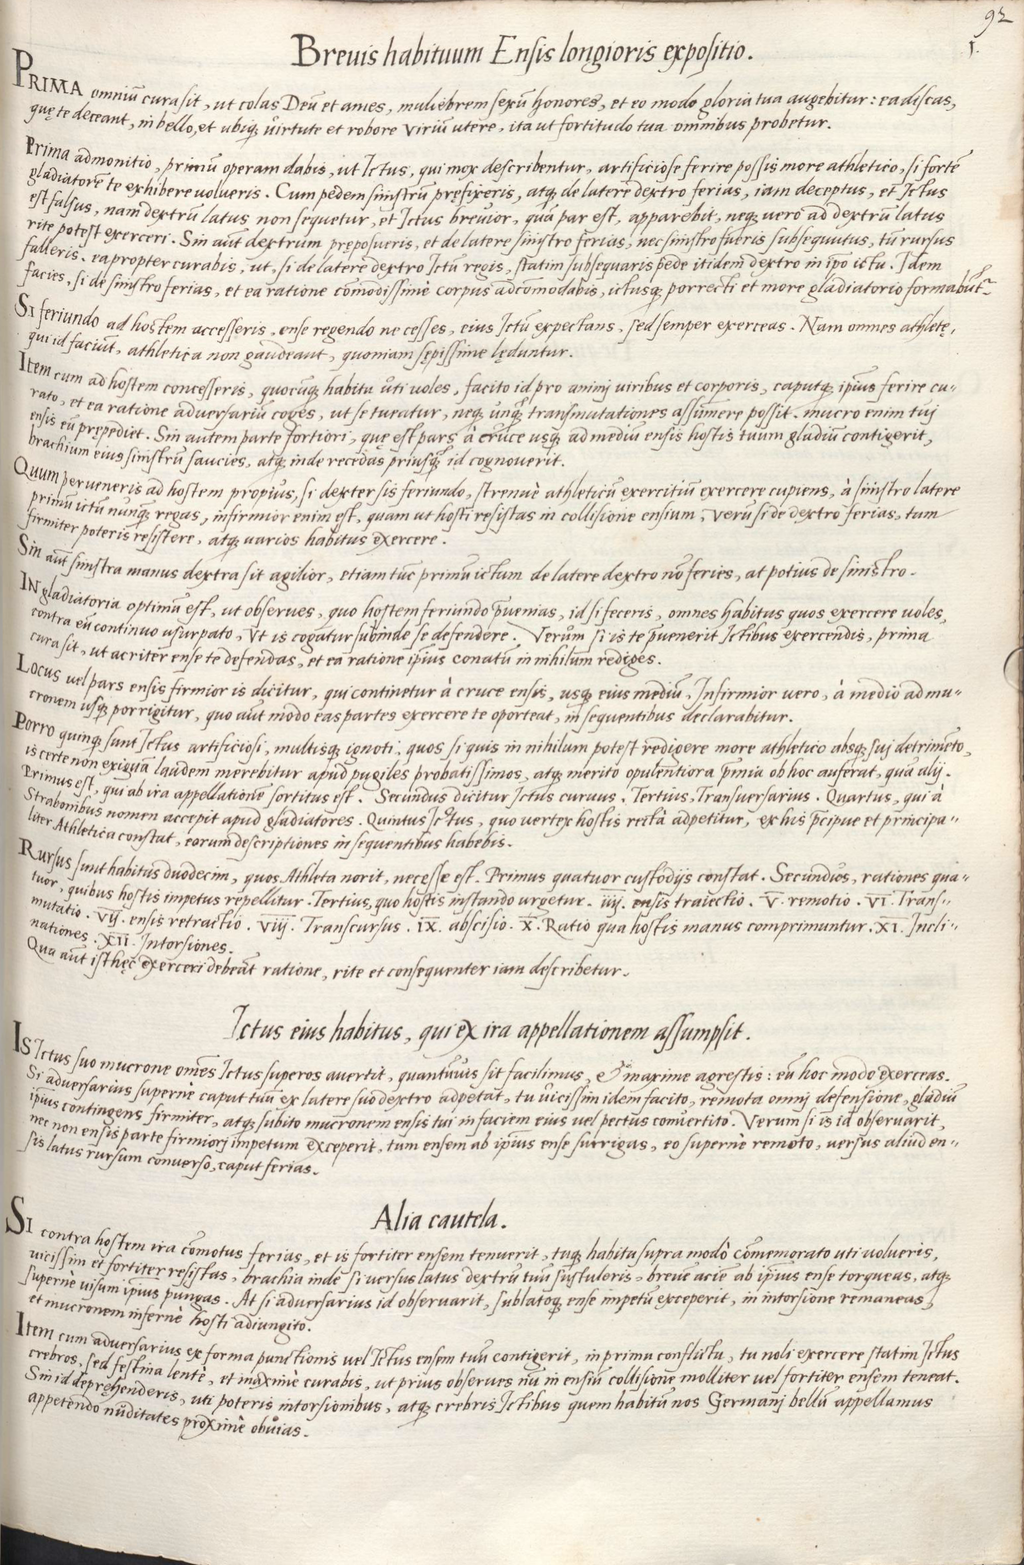 92
1.
Breuis habituum Ensis longioris expositio.
PRIMA omniũ cura sit, ut colas Deũ et ames, muliebrem sexũ honores, et eo modo gloria tua augebitur: ea discas,
quę te deceant, in bello, et ubiq̃ uirtute et robore viriũ utere, ita ut fortitudo tua omnibus probetur.
Prima admonitio, primũ operam dabis, ut Ictus, qui mox describentur, artificiose ferire possis more athletico, si forte
gladiatorẽ te exhibere volueris. Cum pedem sinistrũ pręfixeris, atq̃ de latere dextro ferias, iam deceptus, et Ictus
est falsus, nam dextrũ latus non sequetur, et Ictus breuior, quã par est, apparebit, neq̃ vero ad dextrũ latus
rite potest exerceri. Sin aũt dextrum preposueris, et de latere sinistro ferias, nec sinistro fueris subsequutus, tũ rursus
falleris. ea propter curabis, ut, si de latere dextro Ictũ regis, statim subsequaris pede itidem dextro in ip̃o ictu. Idem
facies, si de sinistro ferias, et ea ratione cõmodissimè corpus adcomodabis, ictusq̃ porrecti et more gladiatorio formabũt.
SI feriundo ad hostem accesseris, ense regendo ne cesses, eius Ictũ expectans, sed semper exerceas. Nam omnes athletę,
qui id faciũt, athletica non gaudeant, quoniam sępissime lęduntur.
Item cum ad hostem concesseris, quocũq̃ habitu uti voles, facito id pro animj viribus et corporis, caputq̃ ipsius ferire cu-
rato, et ea ratione adversariũ coges, ut se tueatur, neq̃ unq̃ transmutationes assumere possit. mucro enim tuj
ensis eũ prępediet. Sin autem parte fortiori, quę est pars à cruce usq̃ ad mediũ ensis hostis tuum gladiũ contigerit,
brachium eius sinistrũ saucies, atq̃ inde recedas priusq̃ id cognouerit.
Quum perueneris ad hostem propius, si dexter sis feriundo, strenuè athleticũ exercitiũ exercere cupiens, à sinistro latere
primũ ictũ nunq̃ regas, infirmior enim est, quam ut hosti resistas in collisione ensium, verũ si de dextro ferias, tum
firmiter poteris resistere, atq̃ uarios habitus exercere.
Sin aũt sinistra manus dextra sit agilior, etiam tũc primũ ictum de latere dextro nõ feries, at potius de sinistro.
IN gladiatoria optimũ est, ut obserues, quo hostem feriundo p̃uenias, id si feceris, omnes habitus quos exercere uoles,
contra eũ continuo usurpato, ut is cogatur subinde se defendere. Verũm si is te p̃uenerit Ictibus exercendis, prima
cura sit, ut acriter ense te defendas, et ea ratione ipsius conatũ in nihilum rediges.
Locus vel pars ensis firmior is dicitur, qui continetur à cruce ensis, usq̃ eius mediũ, Infirmior vero, à medio ad mu-
cronem usq̃ porrigitur, quo aũt modo eas partes exercere te oporteat, in sequentibus declarabitur.
Porro quinq̃ sunt Ictus artificiosi, multisq̃ ignoti, quos si quis in nihilum potest redigere more athletico absq̃ suj detrimẽto,
is certe non exiguã laudem merebitur apud pugiles probatissimos, atq̃ merito opulentiora p̃mia ob hoc auferat, quã alij.
Primus est, qui ab ira appellatione sortitus est. Secundus dicitur Ictus curuus. Tertius, Transuersarius. Quartus, qui à
Strabonibus nomen accepit apud gladiatores. Quintus Ictus, quo vertex hostis rectà adpetitur, ex his p̃cipue et principa-
liter Athletica constat, eorum descriptiones in sequentibus habebis.
Rursus sunt habitus duodecim, quos Athleta norit, necesse est. Primus quatuor custodijs constat. Secundus, rationes qua-
tuor, quibus hostis impetus repellitur. Tertius, quo hostis instando urgetur. iiij. ensis traiectio. V. remotio. VI. Trans-
mutatio. Vij. ensis retractio. Viij. Transcursus. IX. abscisio. X. Ratio qua hostis manus comprimuntur. XI. Incli-
nationes. XII. Intorsiones.
Qua aũt isthęc exerceri debeãt ratione, rite et consequenter iam describetur.
Ictus eius habitus, qui ex ira appellationem assumpsit.
IS Ictus suo mucrone om̃es Ictus superos auertit, quantũuis sit facilimus, & maxime agrestis: eũ hoc modo exerceas.
Si aduersarius supernè caput tuũ ex latere suo dextro adpetat, tu uicissim idem facito, remota omnj defensione, gladiũ
ipsius contingens firmiter, atq̃ subito mucronem ensis tui in faciem eius vel pectus conuertito. Verum si is id obseruarit,
nec non ensis parte firmiorj impetum exceperit, tum ensem ab ipsius ense surrigas, eo supernè remoto, versus aliud en-
sis latus rursum conuerso, caput ferias.
Alia cautela.
SI contra hostem ira cõmotus ferias, et is fortiter ensem tenuerit, tuq̃ habitu supra modò cõmemorato uti volueris,
vicissim et fortiter resistas, brachia inde si versus latus dextrũ tuũ sustuleris, breuẽ aciẽ ab ipsius ense torqueas, atq̃
supernè uisum ipsius pungas. At si aduersarius id obseruarit, sublatoq̃ ense impetũ exceperit, in intorsione remaneas,
et mucronem infernè hosti adiungito.
Item cum aduersarius ex forma punctionis vel Ictus ensem tuũ contigerit, in primo conflictu, tu noli exercere statim Ictus
crebros, sed festina lentè, et maximè curabis, ut prius obserues nũ in ensiũ collisione molliter vel fortiter ensem teneat.
Sin id deprehenderis, uti poteris intorsionibus, atq̃ crebris Ictibus quem habitũ nos Germanj bellũ appellamus
appetendo nuditates proximè obuias.